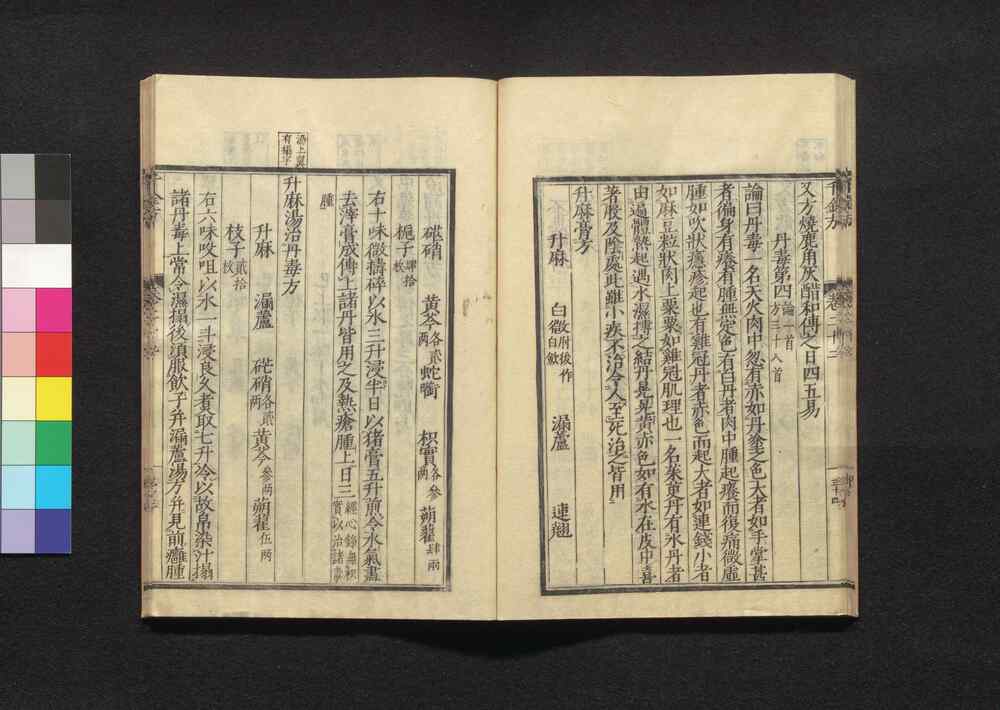 又方燒鹿角灰醋和傅之日四五易
丹毒第四 論一首 方三十八首
論曰丹毒一名天火肉中忽有赤如丹塗之色大者如手掌甚
者徧身有癢有腫無定色有白丹者肉中腫起癢而復痛微虛
腫如吹狀癮疹起也有雞冠丹者赤色而起大者如連錢小者
如麻豆粒狀肉上粟粟如雞冠肌理也一名茱萸丹有水丹者
由遍體熱起遇水濕搏之結丹晃晃黃赤色如有水在皮中喜
著股及陰處此雖小疾不治令人至死治之皆用
升麻膏方
升麻 白薇 肘後作白斂 漏蘆 連翹
硭硝 黃芩 各貳兩 蛇銜 枳實 各參兩 蒴藋 肆兩
梔子 肆拾枚
右十味微擣碎以水三升浸半日以猪膏五升煎令水氣盡
去滓膏成傅上諸丹皆用之及熱瘡腫上日三 經心錄無枳實以治諸毒
腫
湯上冀有搨字
升麻湯治丹毒方
升麻 漏蘆 硭硝 各貳兩 黃芩 參兩 蒴藋 伍兩
枝子 貳拾枚
右六味㕮咀以水一斗浸良久煮取七升冷以故帛染汁搨
諸丹毒上常令濕搨後須服飲子并漏蘆湯方并見前癰腫